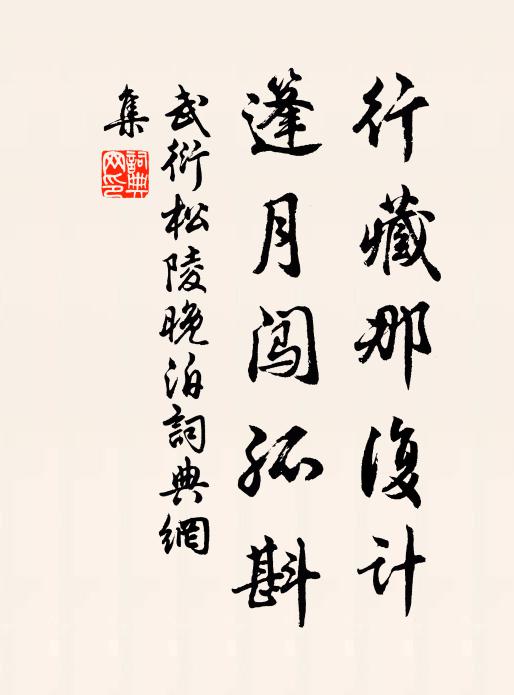 行藏那復计
蓬月闯孤斟
武衍松陵晚泊詞典網
集
詞典網印